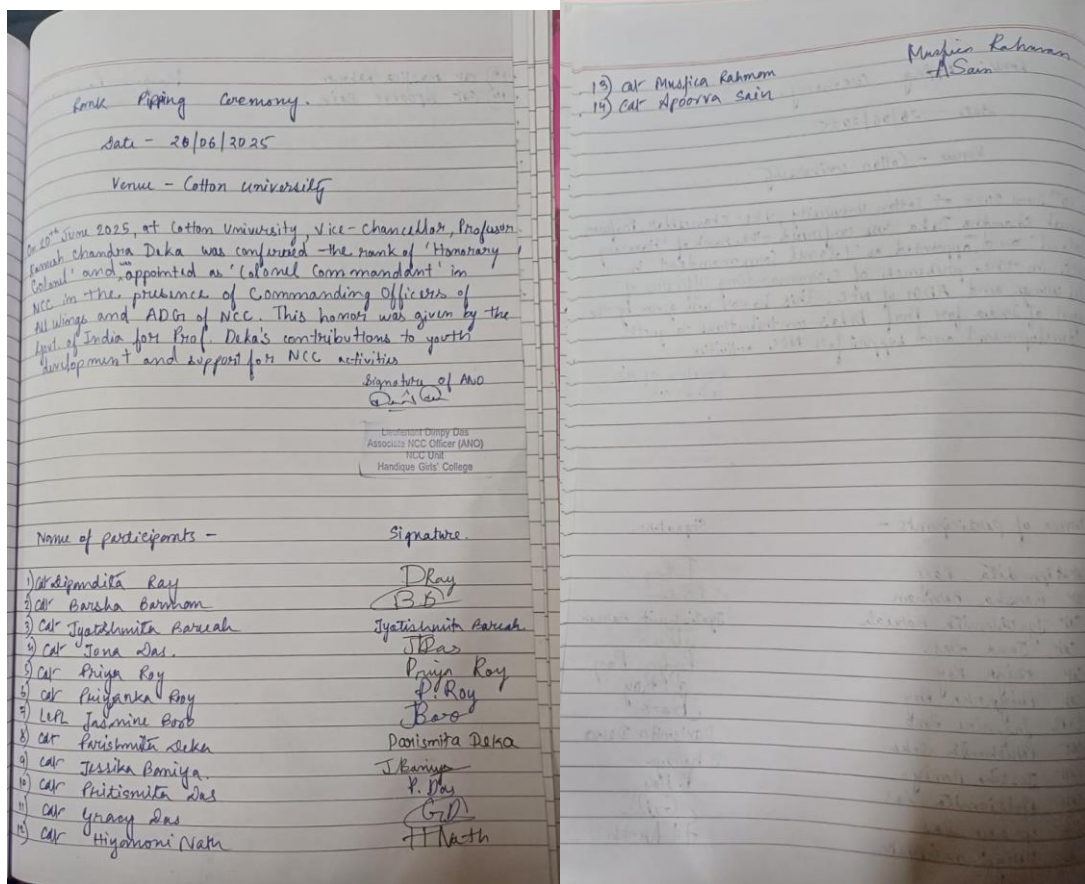 Rank Pipping Ceremony.
Date - 20/06/2025
Venue - Cotton University
On 20th June 2025, at Cotton University, Vice-Chancellor, Professor
Ramesh Chandra Deka was conferred the rank of 'Honorary
Colonel' and appointed as 'Colonel Commandant' in
NCC in the presence of Commanding Officers of
All wings and ADG of NCC. This honor was given by the
Govt. of India for Prof. Deka's contributions to youth
development and support for NCC activities
Signature of ANO
Lieutenant Dimpy Das
Associate NCC Officer (ANO)
NCC Unit
Handique Girls' College
Name of participants - Signature.
1) Cdt Dipandita Ray DRay
2) Cdt Barsha Barman BB
3) Cdt Jyotishmita Baruah Jyotishmita Baruah
4) Cdt Jona Das. JDas
5) Cdt Priya Roy Priya Roy
6) Cdt Priyanka Roy P. Roy
7) LCPL Jasmine Boro JBoro
8) Cdt Parishmita Deka Parismita Deka
9) Cdt Jessika Baniya. J Baniya
10) Cdt Pritismita Das P. Das
11) Cdt Gracy Das GD
12) Cdt Hiyamoni Nath HNath
13) Cdt Musfica Rahman Musfica Rahman
14) Cdt Apoorva Sain ASain